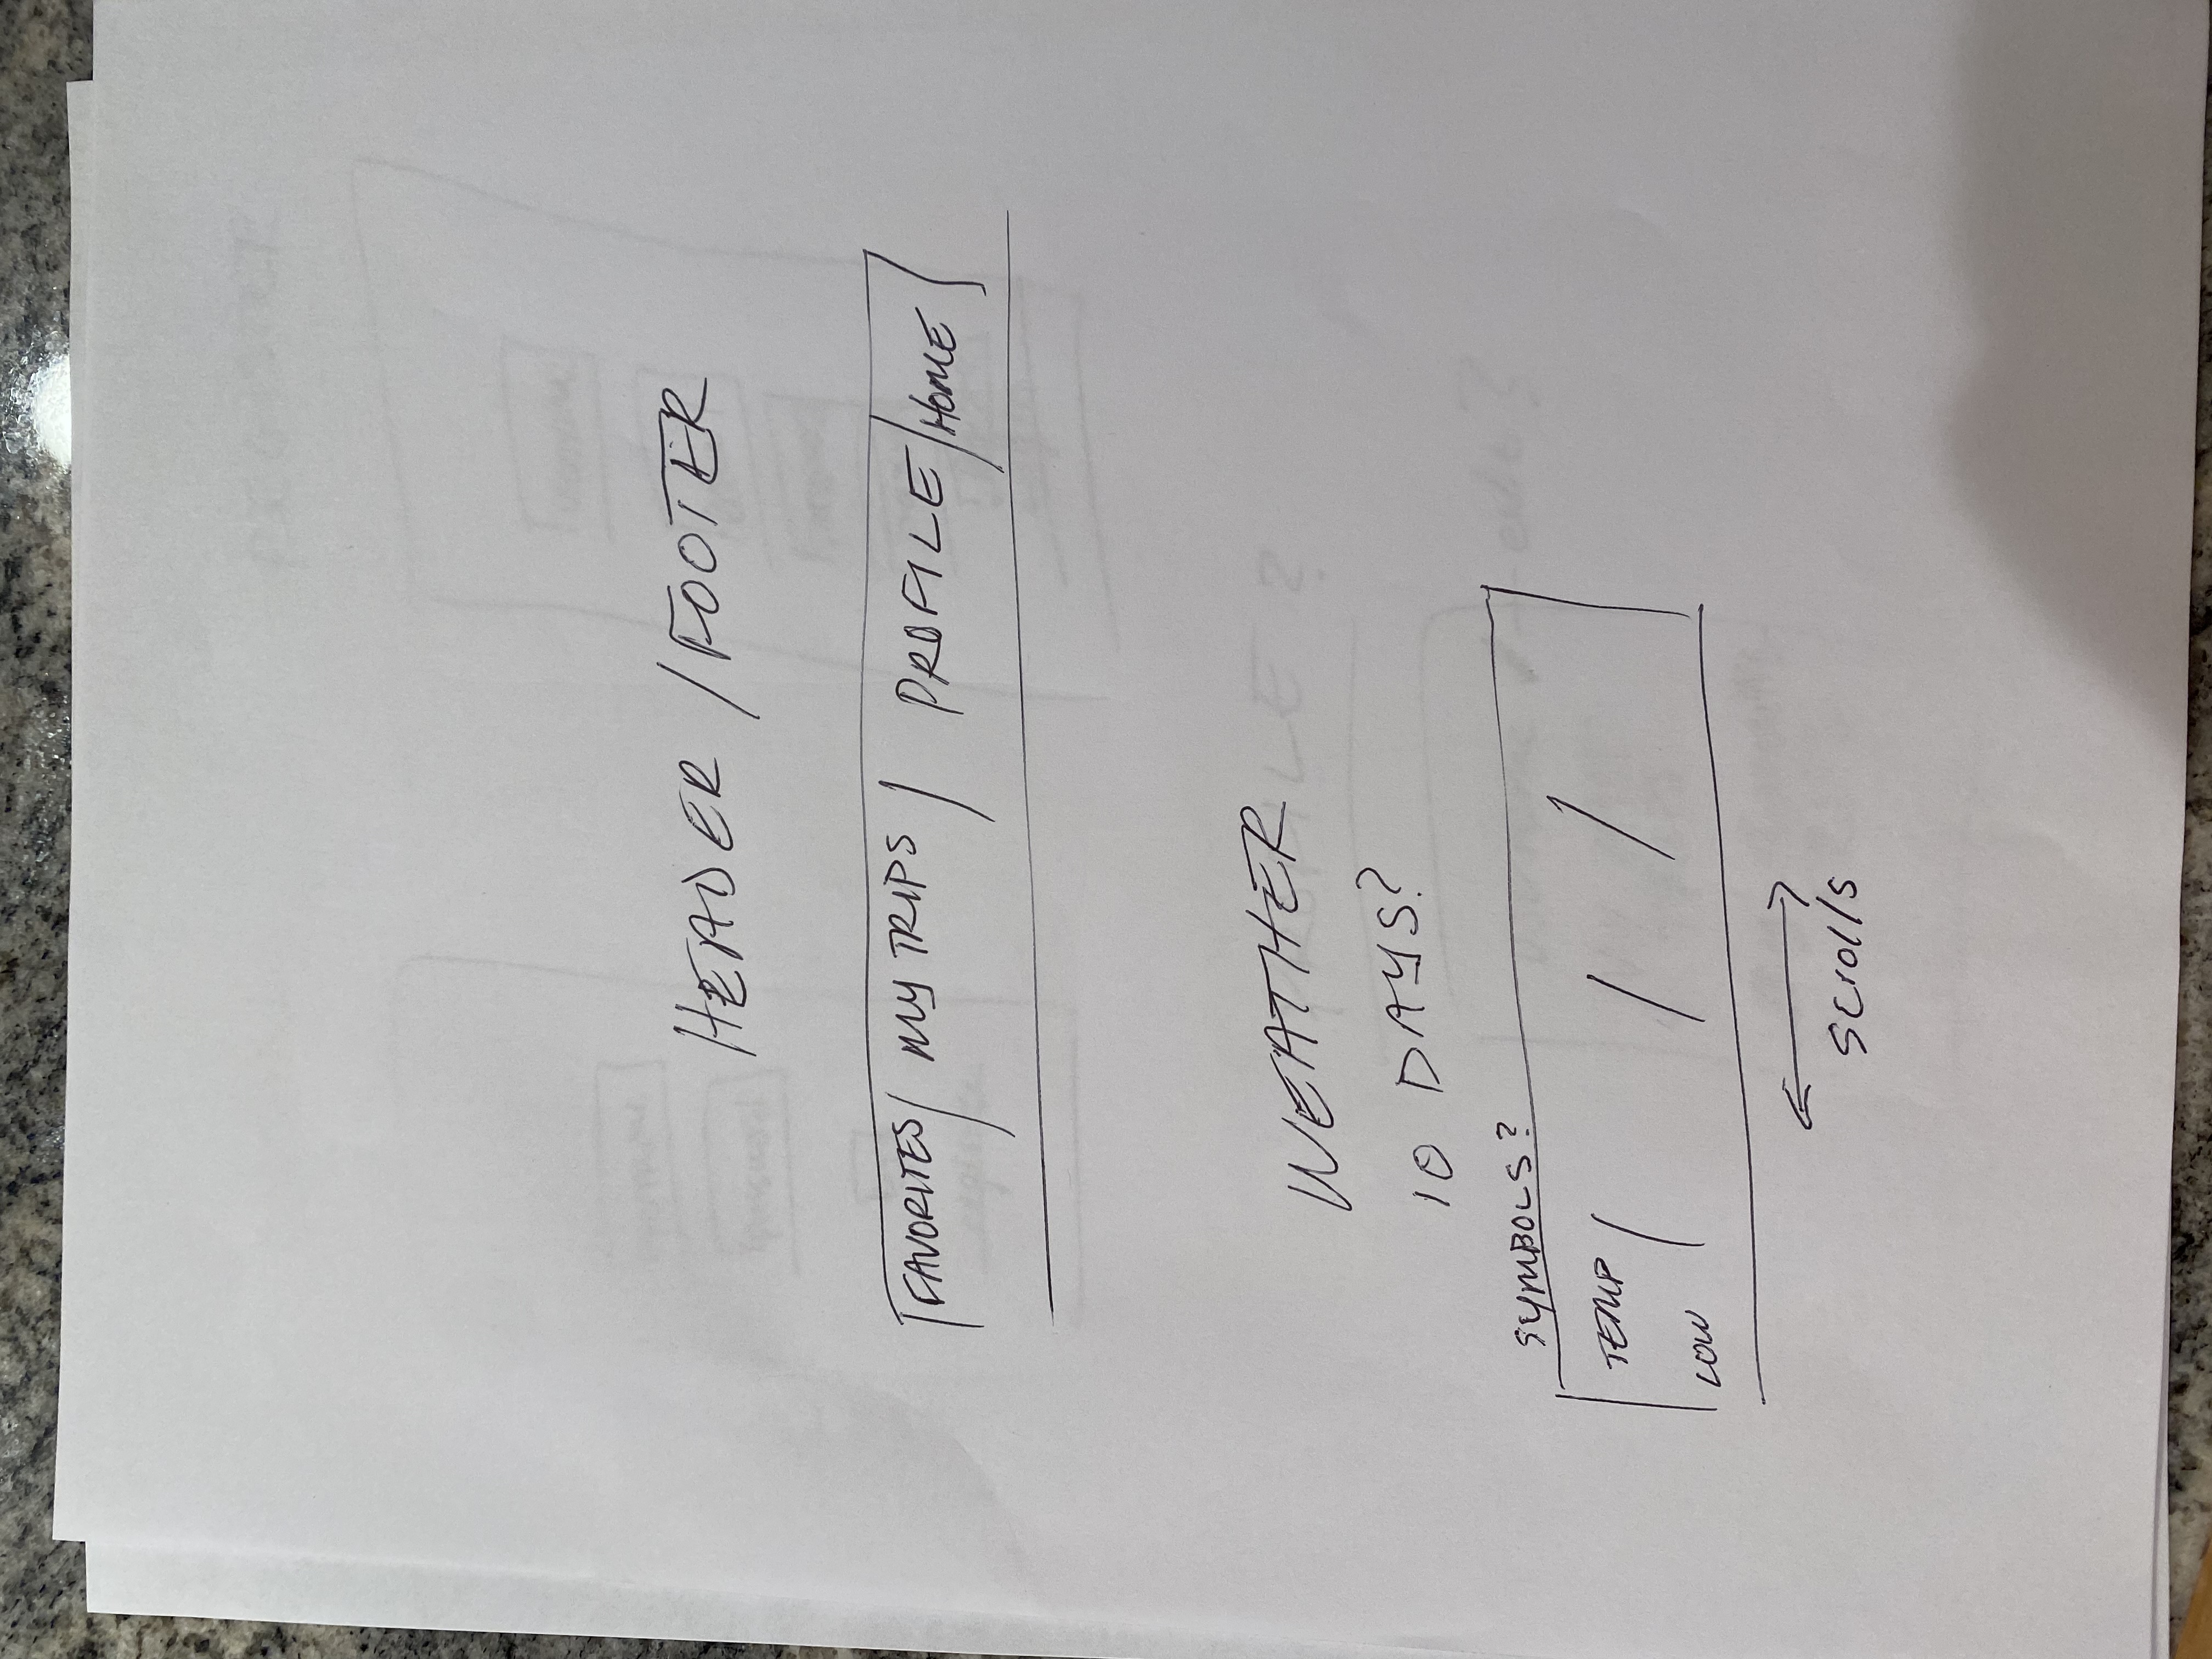 HEADER / FOOTER
FAVORITES / MY TRIPS / PROFILE / HOME
WEATHER
10 DAYS?
SYMBOLS?
TEMP
LOW
scrolls